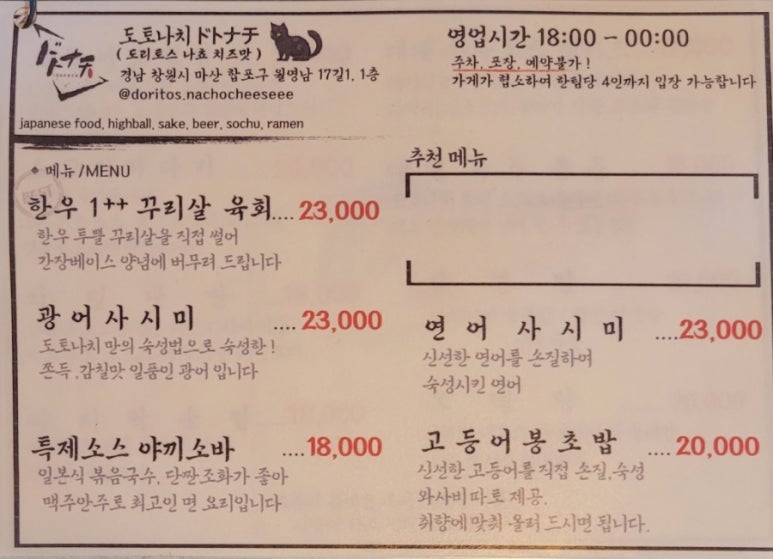 ドトナチ
도토나치 ドトナチ
( 도리토스 나쵸 치즈맛 )
경남 창원시 마산 합포구 월영남 17길1, 1층
@doritos.nachocheeseee
japanese food, highball, sake, beer, sochu, ramen
영업시간 18:00 - 00:00
주차, 포장, 예약불가 !
가게가 협소하여 한팀당 4인까지 입장 가능합니다
메뉴/MENU
한우 1++ 꾸리살 육회....23,000
한우 투뿔 꾸리살을 직접 썰어
간장베이스 양념에 버무려 드립니다
광어사시미 ....23,000
도토나치 만의 숙성법으로 숙성한 !
쫀득,감칠맛 일품인 광어 입니다
특제소스 야끼소바 ....18,000
일본식 볶음국수, 단짠조화가 좋아
맥주안주로 최고인 면 요리입니다
추천 메뉴
연어 사시미 ....23,000
신선한 연어를 손질하여
숙성시킨 연어
고등어봉초밥 ....20,000
신선한 고등어를 직접 손질,숙성
와사비 따로 제공.
취향에 맞춰 올려 드시면 됩니다.